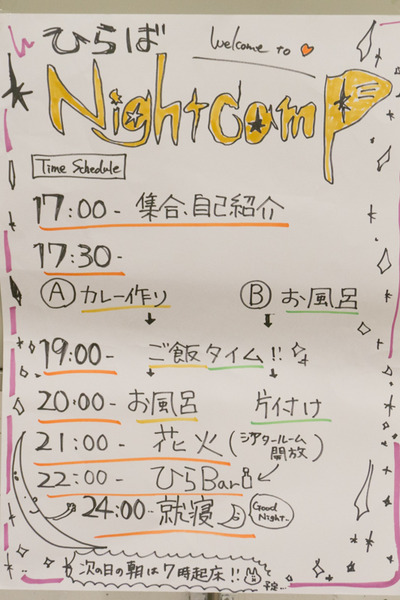 ひらば
Welcome to
Night Camp
Time Schedule
17:00- 集合、自己紹介
17:30-
Ⓐ カレー作り Ⓑ お風呂
19:00- ご飯タイム!!
20:00- お風呂 片付け
21:00- 花火 (シアタールーム開放)
22:00- ひらBar
24:00- 就寝 Good Night..
次の日の朝は7時起床!! 予定…